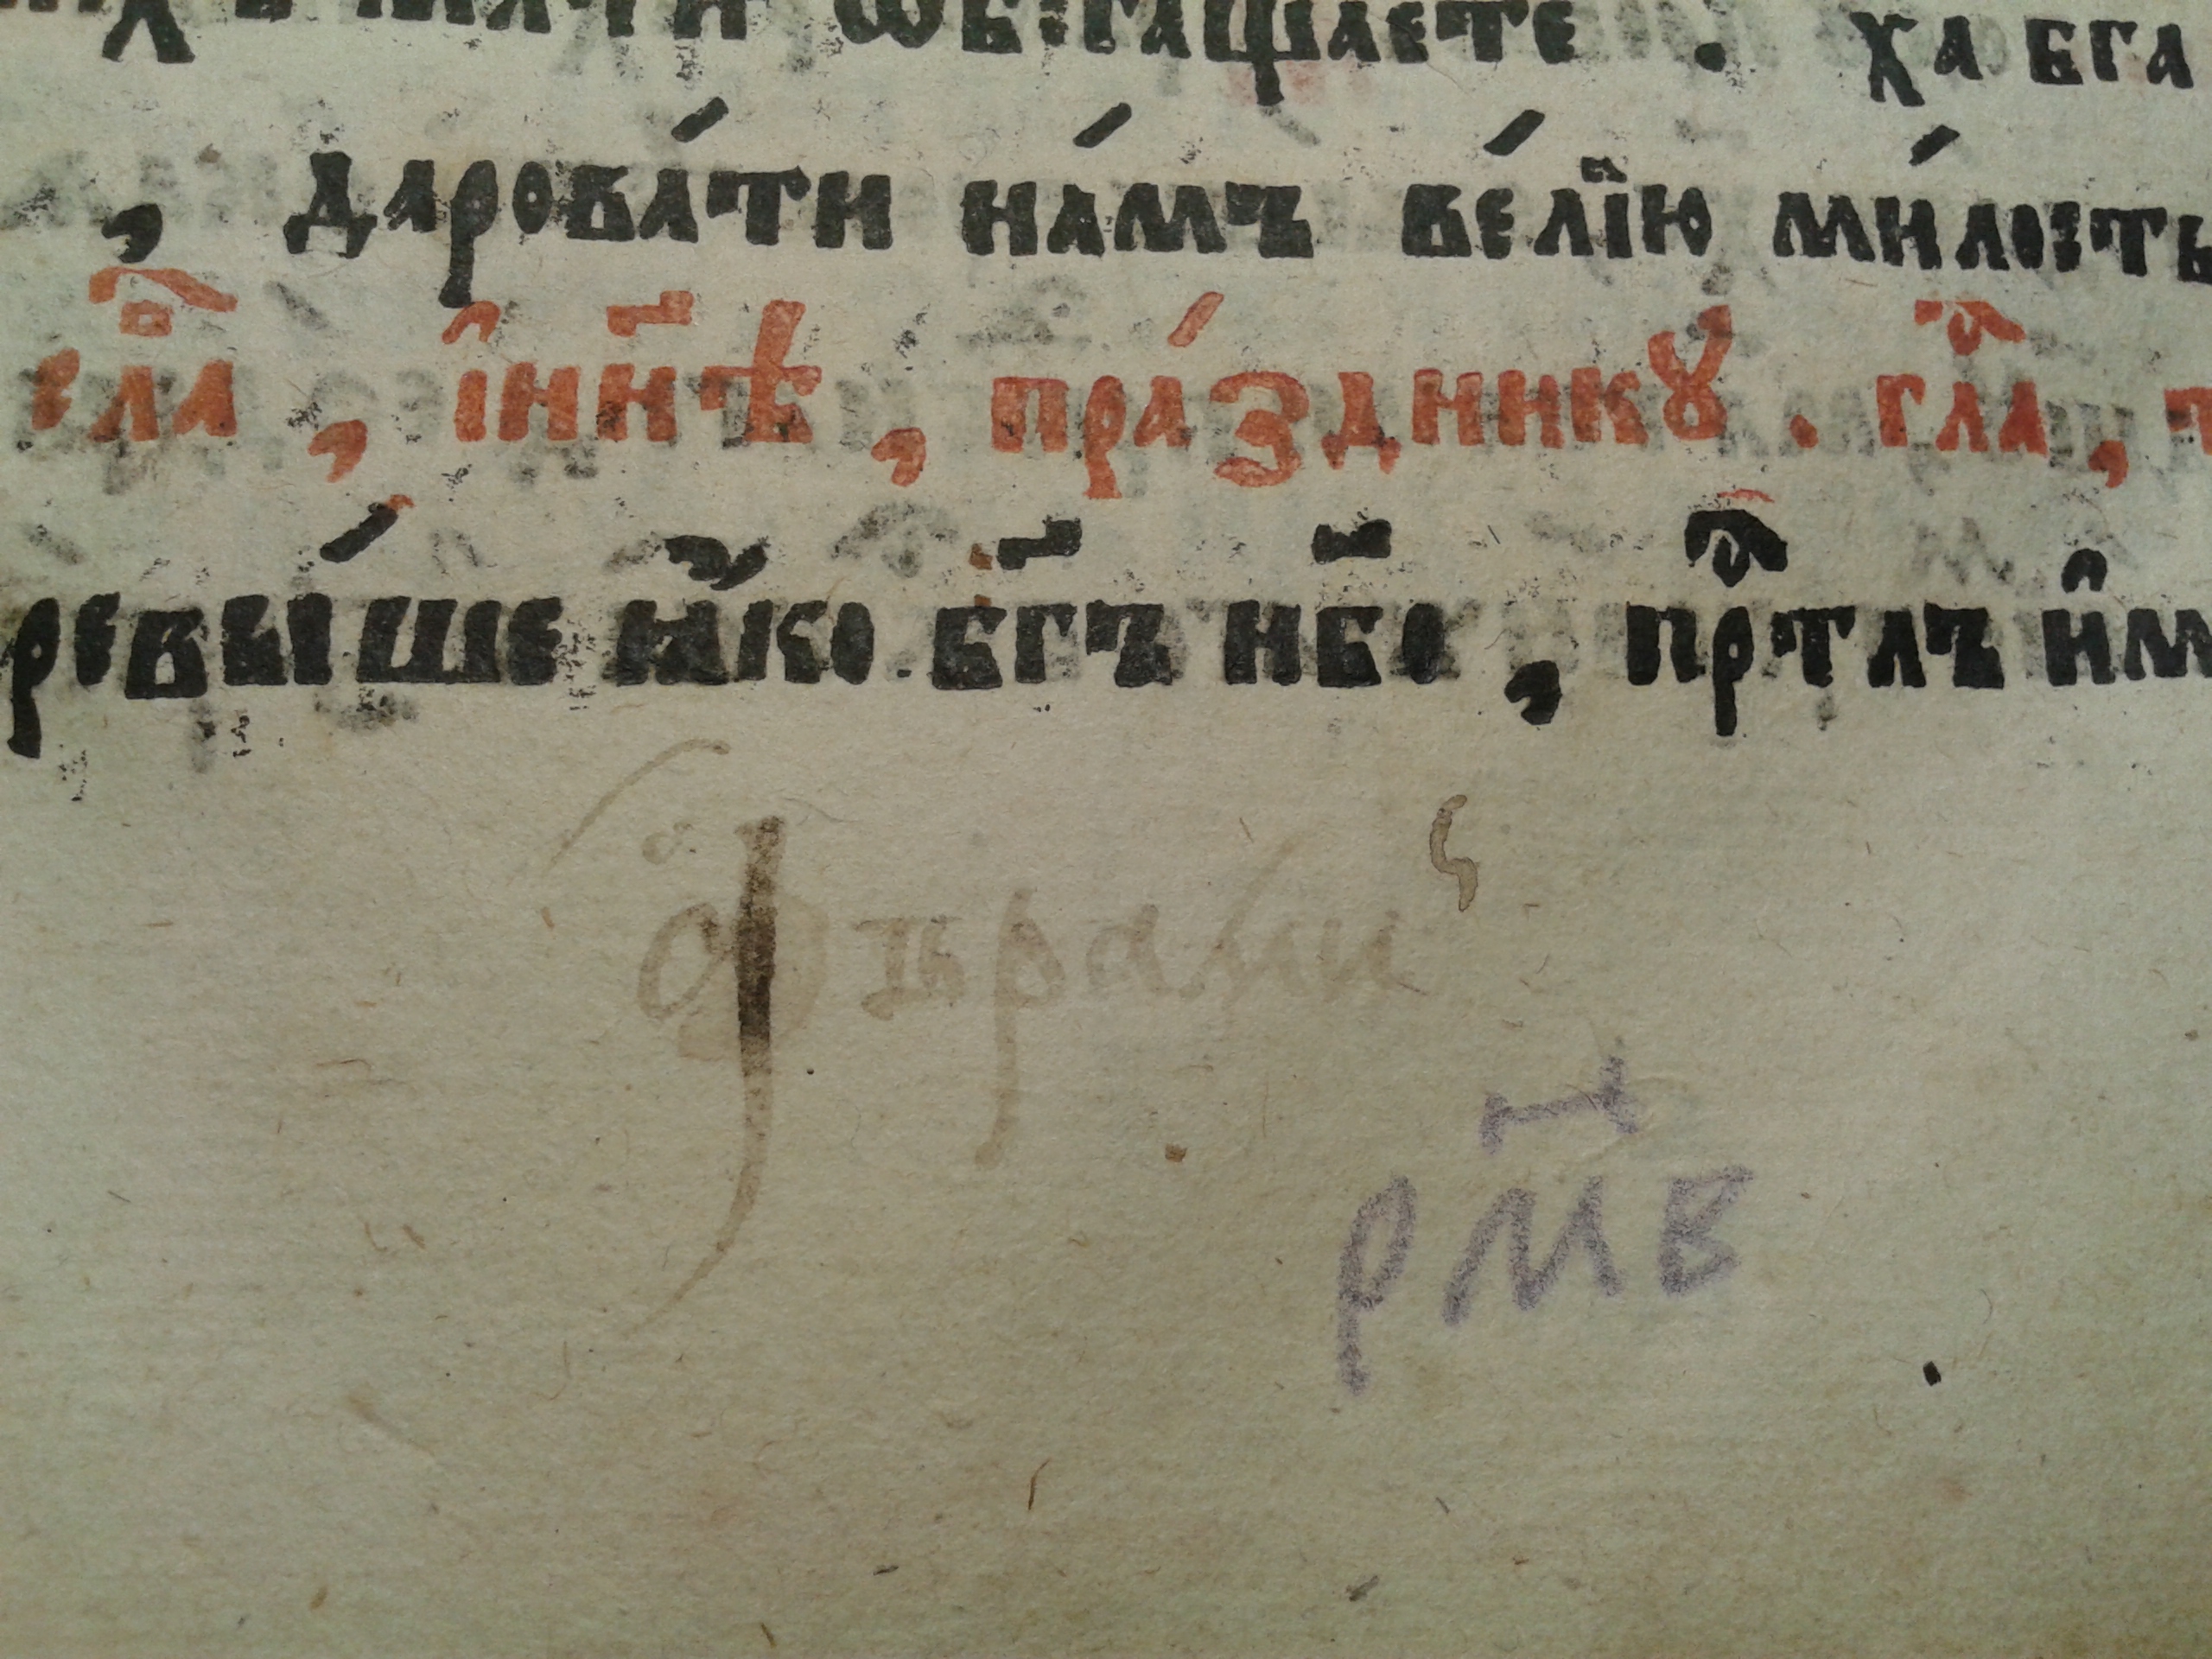 ѡбогащаете . ха бга
, дарова́ти на́мъ ве́лїю ми́лость
, і҆нн҃ѣ , пра́здникꙋ . гла ,
ревы́ше ꙗ҆́ко . бг҃ъ нб҃о , прⷭ҇тлъ и҆м
рм҃в